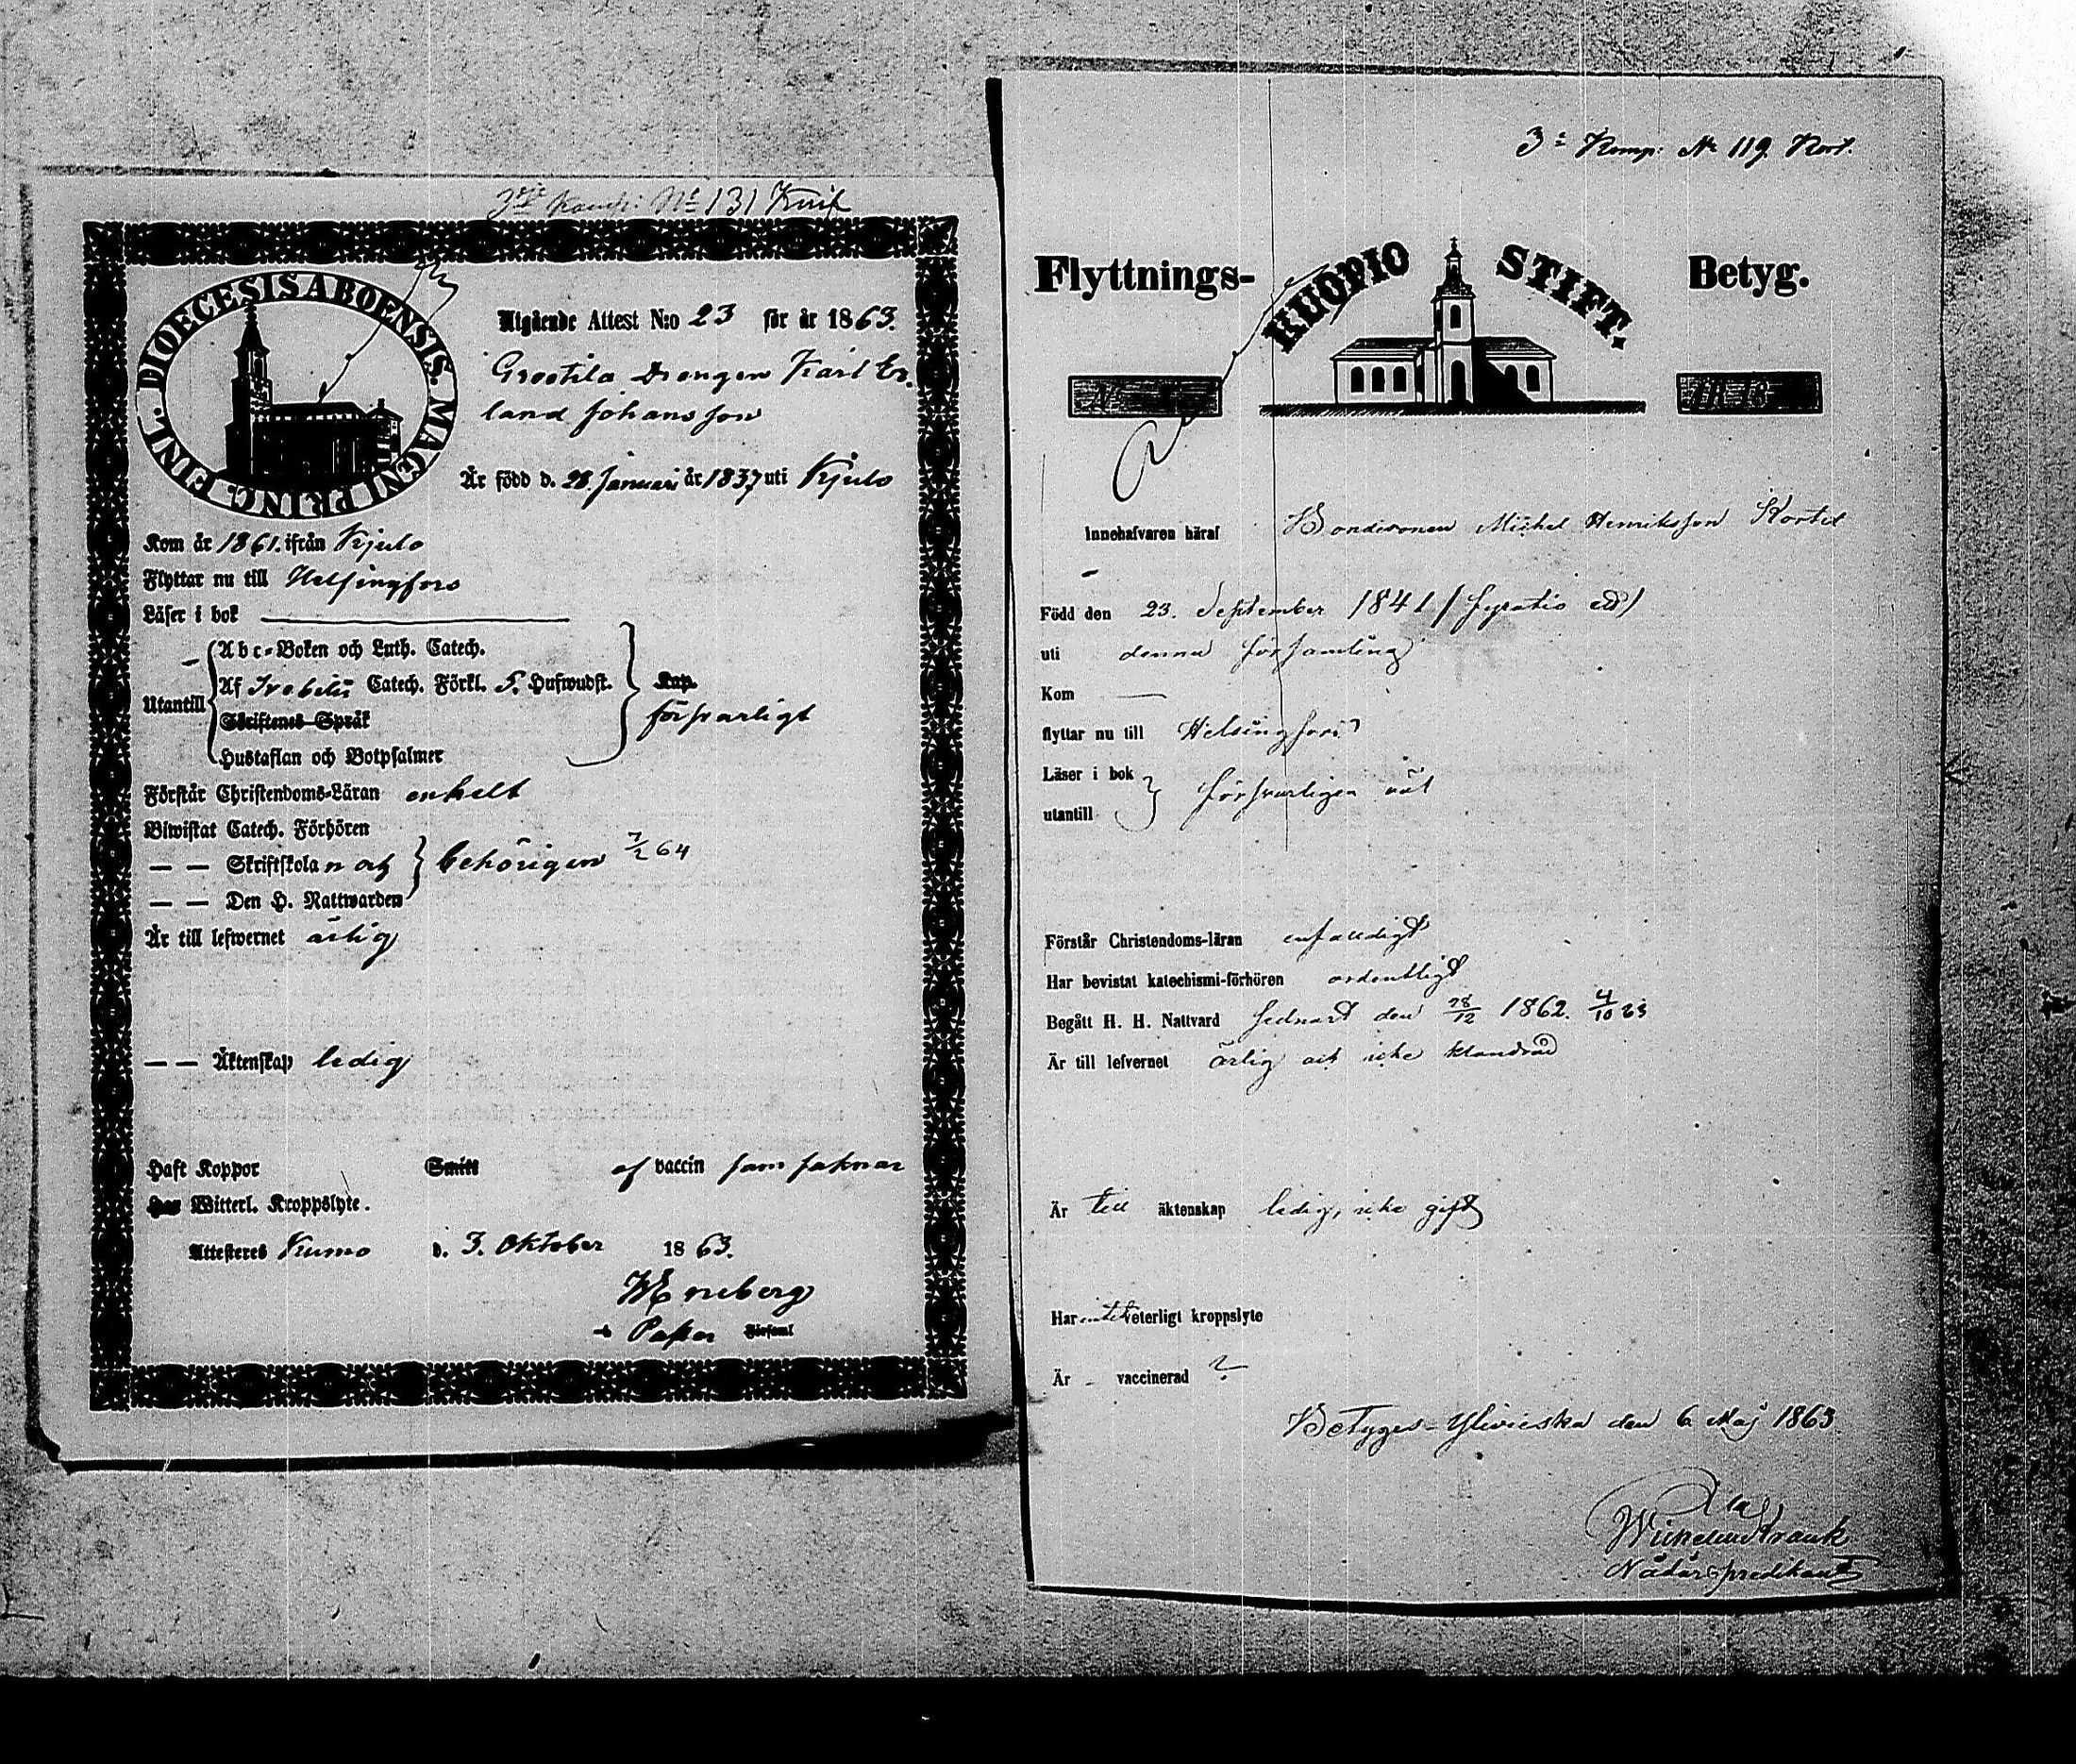 Komp: No 131 Knif
DIOECESIS ABOENSIS. MAGNI PRINC. FINL.
Utgående Attest N:o 23 för år 1863.
Grootila Drengen Karl Er-
land Johansson
Är född d. 28. Januari år 1837 uti Kjulo
Kom år 1861. ifrån Kjulo
Flyttar nu till Helsingfors
Läser i bok
Utantill
Abc-Boken och Luth. Catech.
Af Svebelii Catech. Förkl. 5. Hufwudst.
Skriftenes Språk
Hustaflan och Botpsalmer
Kap.
försvarligt
Förstår Christendoms-Läran enkelt
Biwistat Catech. Förhören
— — Skriftskolan och
— — Den H. Nattwarden
behörigen 7/2 64
Är till lefwernet ärlig
— — Äktenskap ledig
Haft Koppor Smitt af vaccin som faknar
Har Witterl. Kroppslyte.
Attesteres Kumo d. 3. Oktober 1863.
Pastor Församl
3e Komp: No 119. Kort.
Flyttnings- KUOPIO STIFT. Betyg.
N
AR 18
Innehafvaren häraf Bondesonen Michel Henriksson Kortet
Född den 23. September 1841 / fyratio ett /
uti denna församling
Kom —
flyttar nu till Helsingfors
Läser i bok
utantill
försvarligen väl
Förstår Christendoms-läran enfaldigt
Har bevistat katechismi-förhören ordentligt
Begått H. H. Nattvard sednast den 28/12 1862. 4/10 63
Är till lefvernet ärlig och icke klandrad
Är till äktenskap ledig, icke gift
Har intet veterligt kroppslyte
Är - vaccinerad ?
Betygas - Ylivieska den 6 Maj 1863